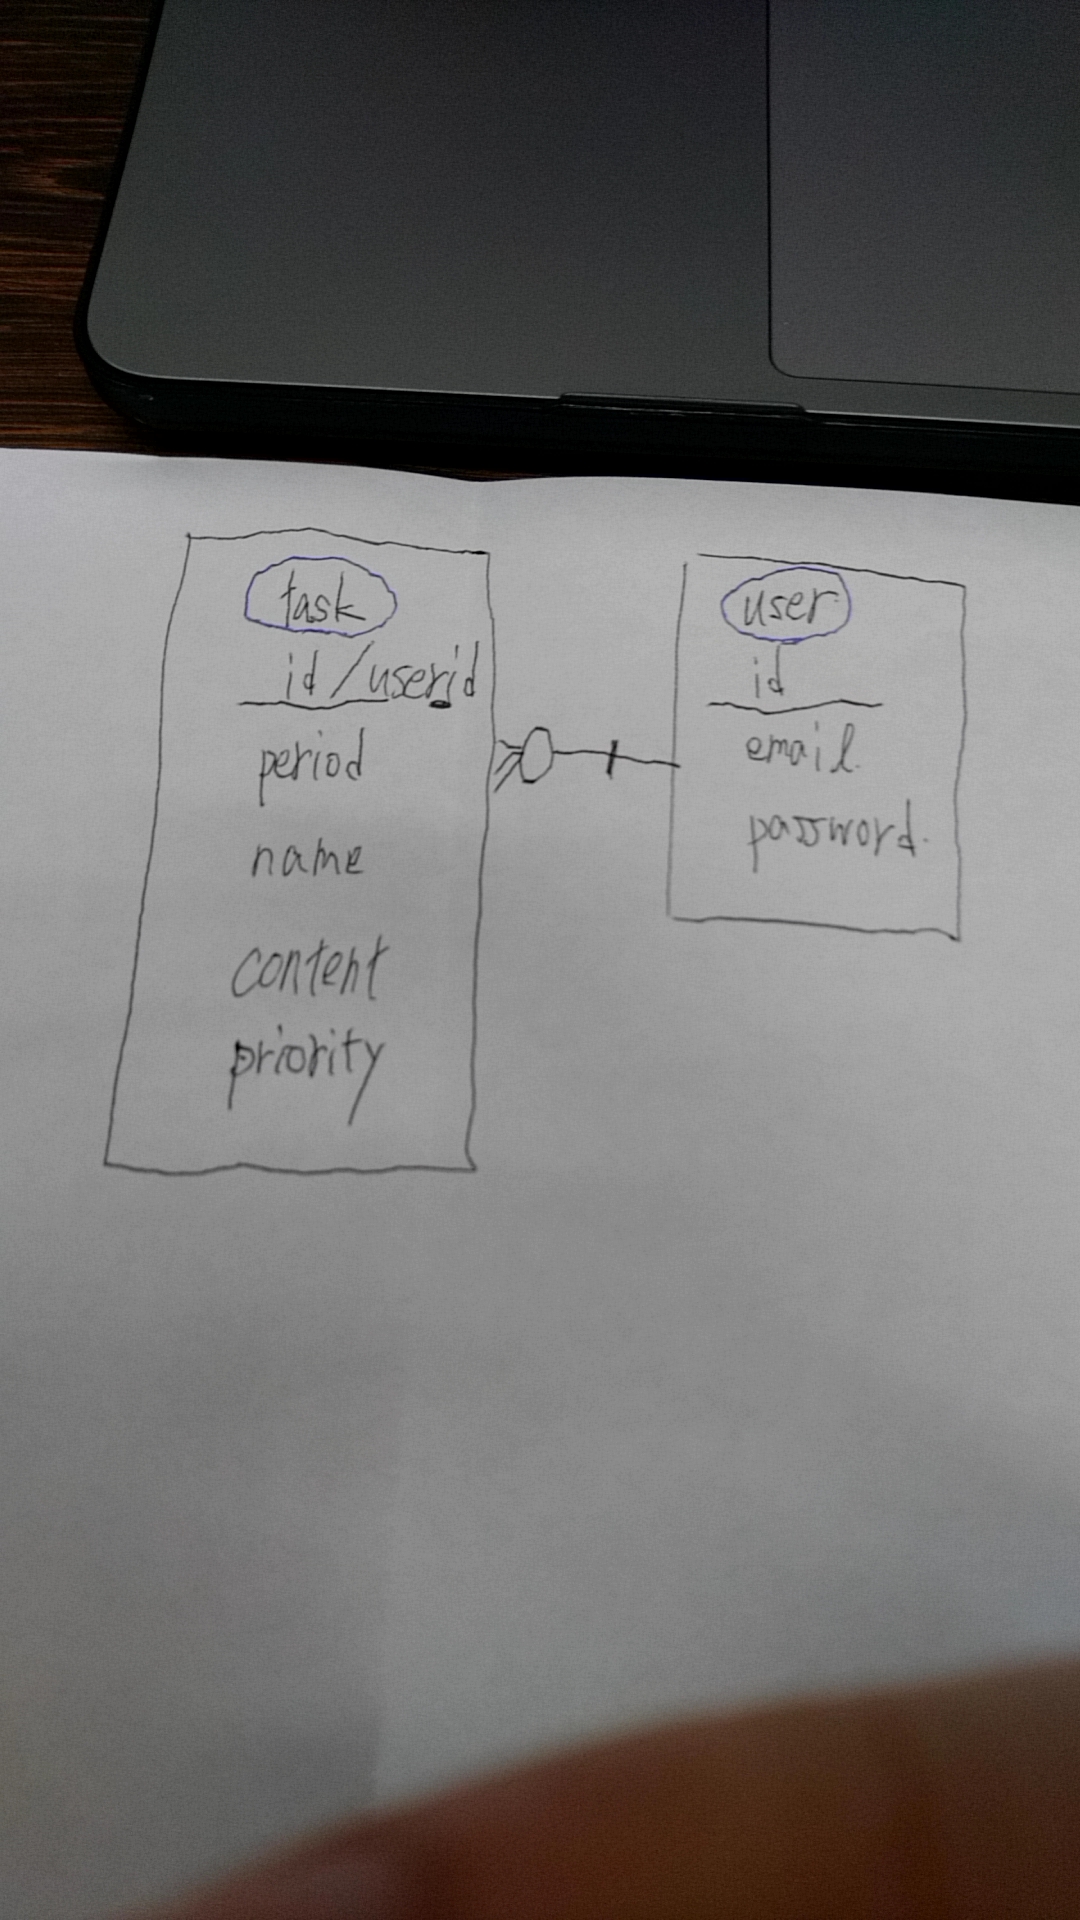 task
id/userid
period
name
content
priority
user
id
email.
password.